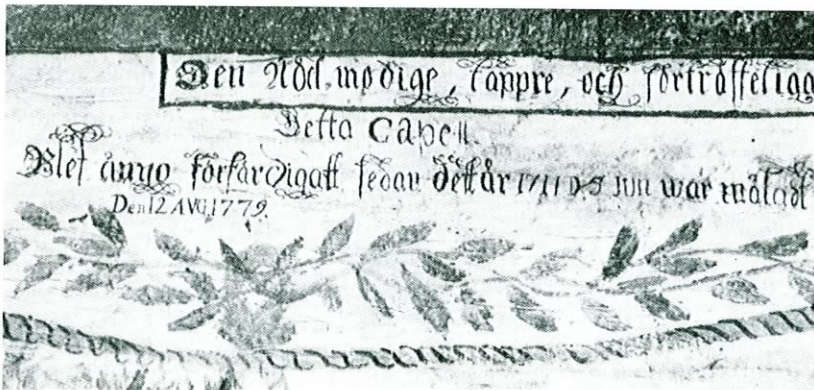 Den Adel, modige, tappre, och förträffeliga
Detta Capell
Blef ånyo förfärdigatt sedan dett år 1711 D 5 Jun war måladt
Den 12 AVG, 1779.